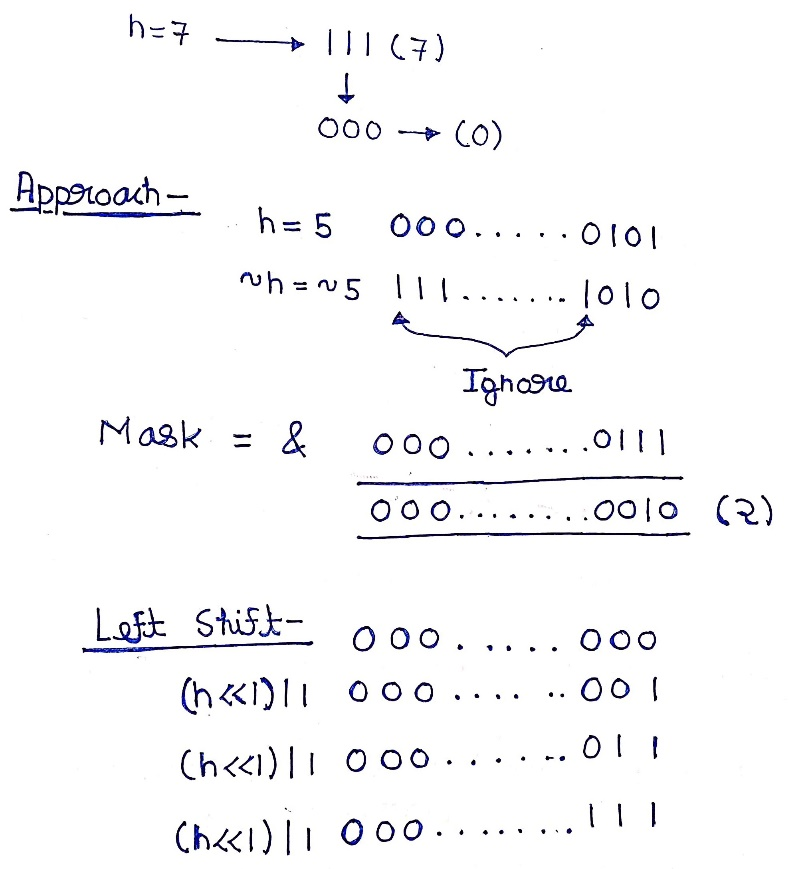 n=7 → 111 (7)
↓
000 → (0)
Approach-
n = 5 000.....0101
~n = ~5 111.......1010
Ignore
Mask = & 000.......0111
000........0010 (2)
Left Shift- 000......000
(n<<1)|1 000......001
(n<<1)|1 000......011
(n<<1)|1 000........111